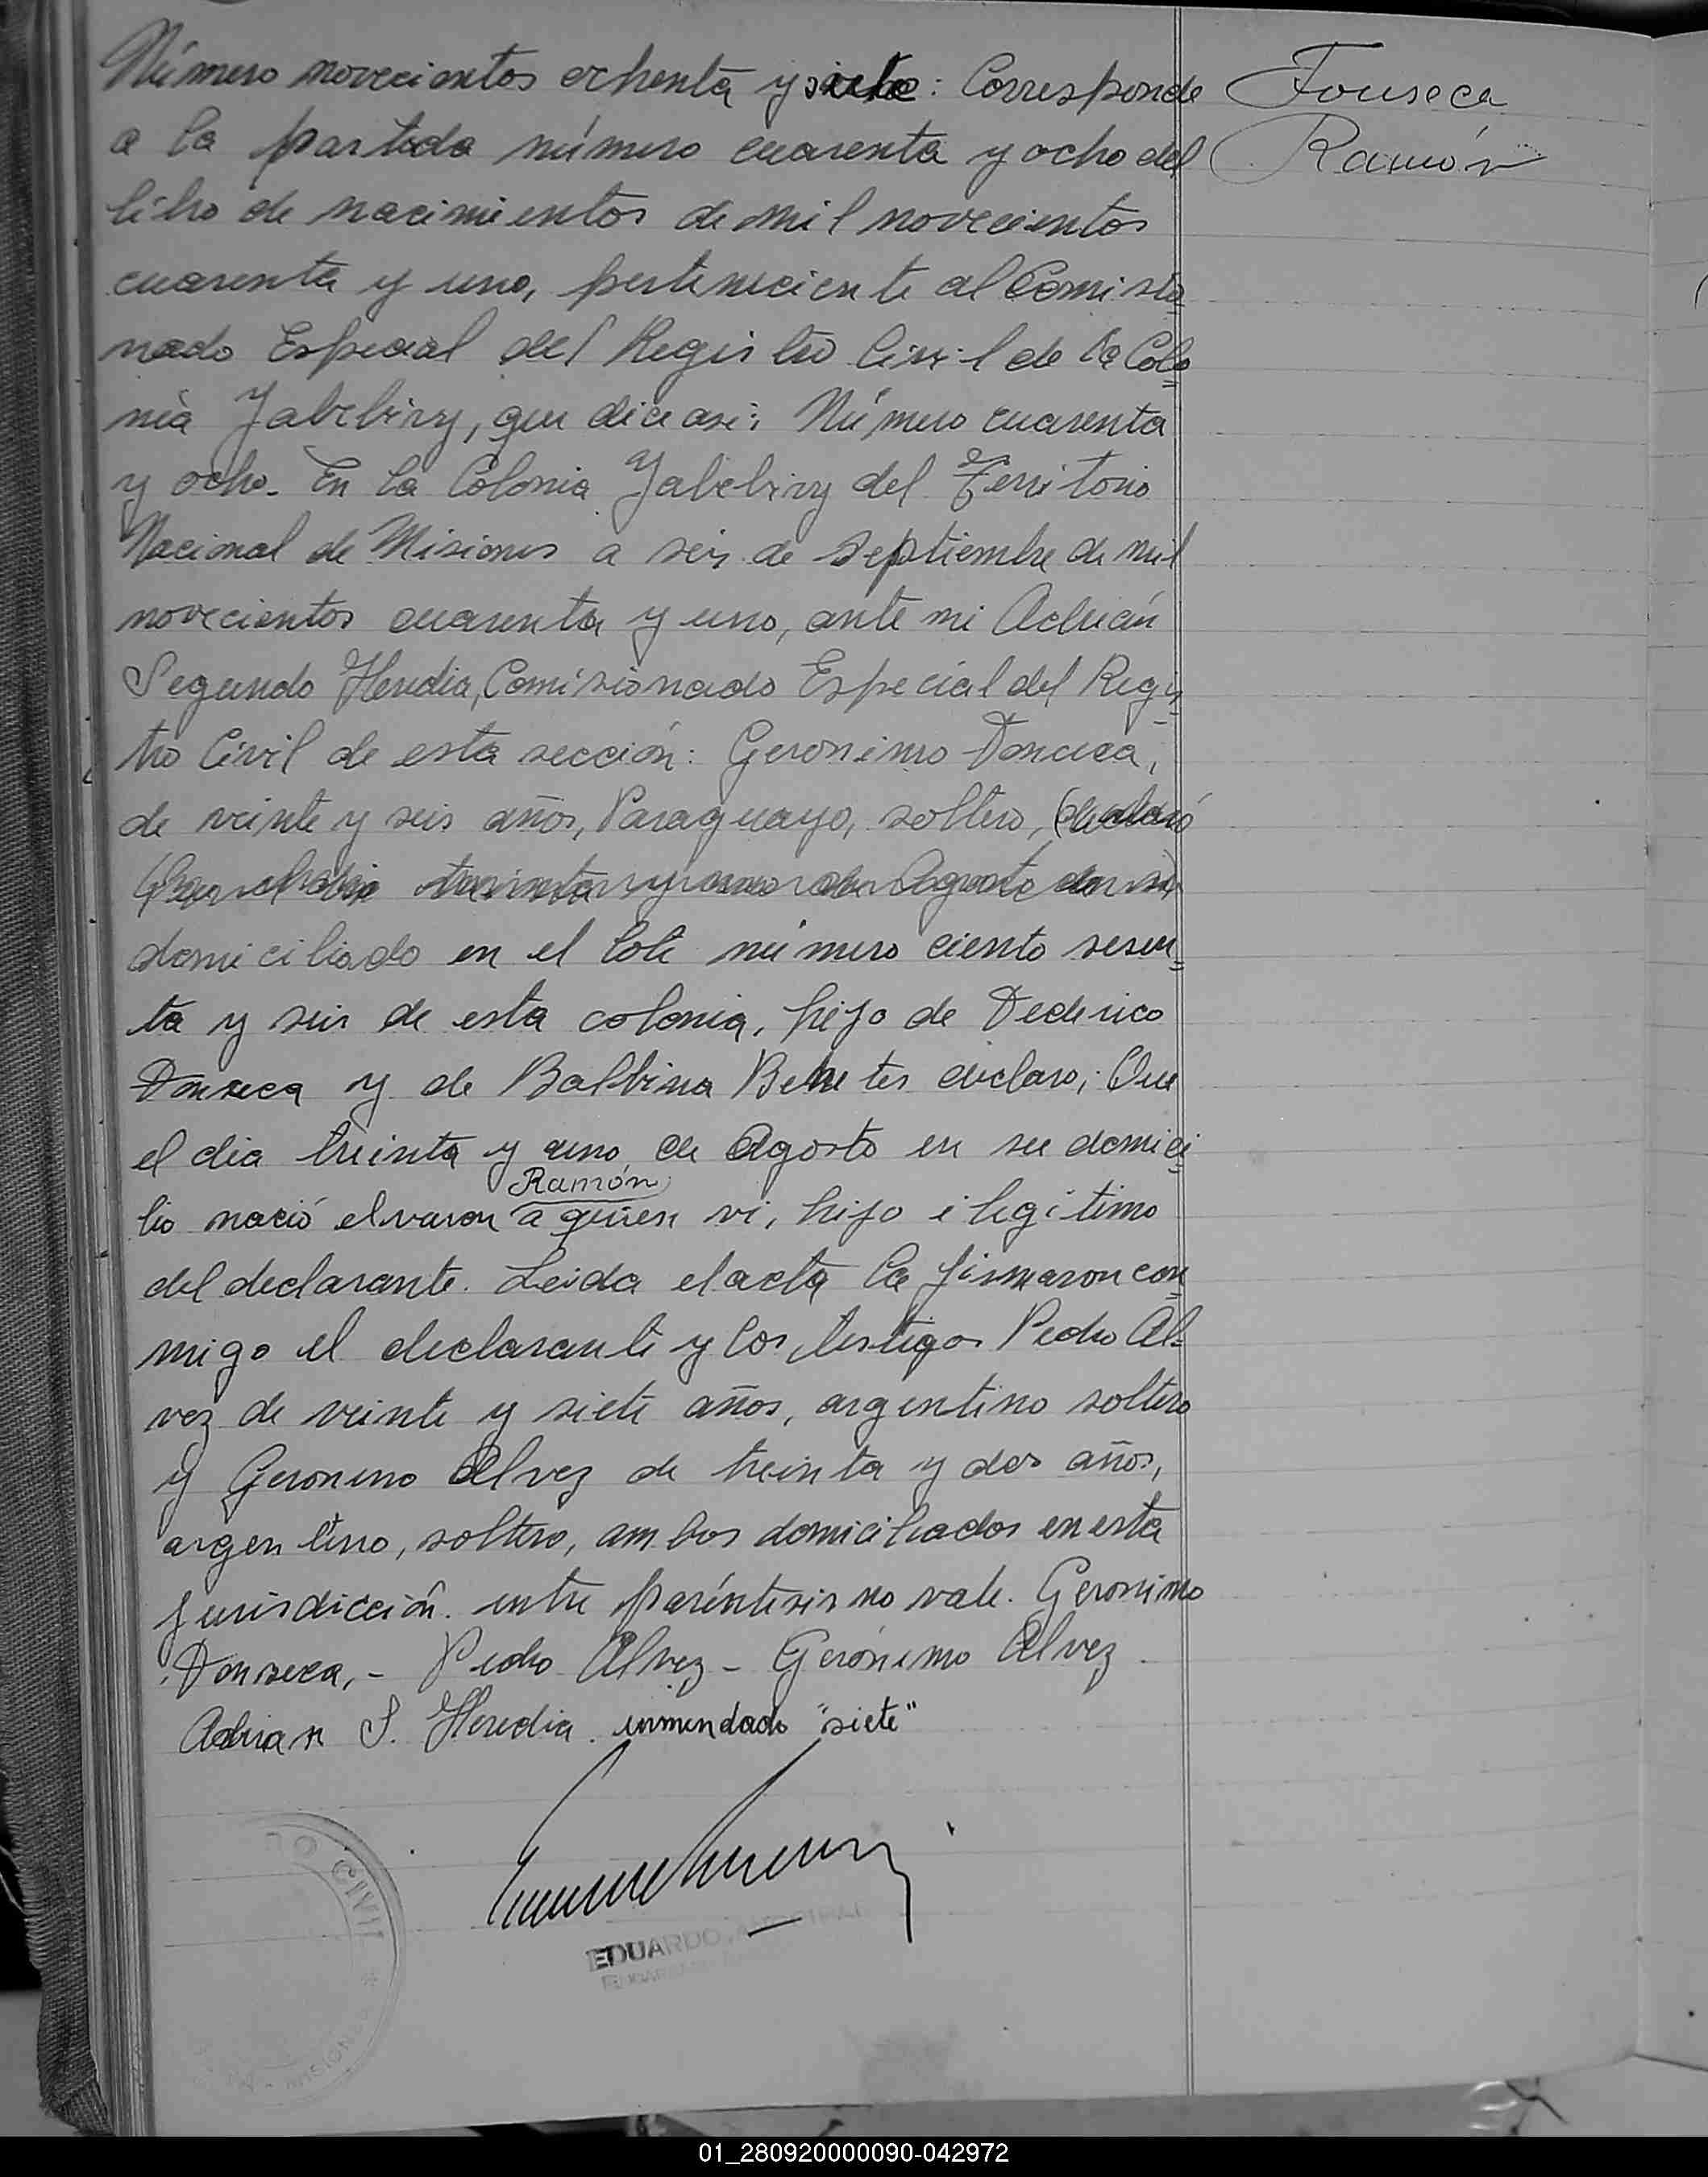 Número novecientos ochenta y siete: Corresponde
a la partida número cuarenta y ocho del
libro de nacimientos de mil novecientos
cuarenta y uno, perteneciente al Comisio
nado Especial del Registro Civil de la Colo
nia Yabebiry, que dice asi: Número cuarenta
y ocho. En la Colonia Yabebiry del Territorio
Nacional de Misiones a seis de septiembre de mil
novecientos cuarenta y uno, ante mi Adrián
Segundo Heredia, Comisionado Especial del Regis
tro Civil de esta sección: Geronimo Fonseca,
de veinte y seis años, Paraguayo, soltero, (declaró
Que el dia treinta y uno de Agosto en su)
domiciliado en el lote número ciento sesen
ta y seis de esta colonia, hijo de Federico
Fonseca y de Balbina Benetes declaro; Que
el dia treinta y uno de Agosto en su domici
Ramón
lio nació el varon a quien vi, hijo ilegítimo
del declarante. Leida el acta la firmaron con
migo el declarante y los testigos Pedro Al=
vez de veinte y siete años, argentino soltero
y Geronimo Alvez de treinta y dos años,
argentino, soltero, ambos domiciliados en esta
jurisdicción. entre paréntesis no vale. Geronimo
Fonseca,- Pedro Alvez - Gerónimo Alvez
Adrian S. Heredia. enmendado "siete"
Fonseca
Ramón
RO CIVIL
MISIONES
EDUARDO
01_280920000090-042972